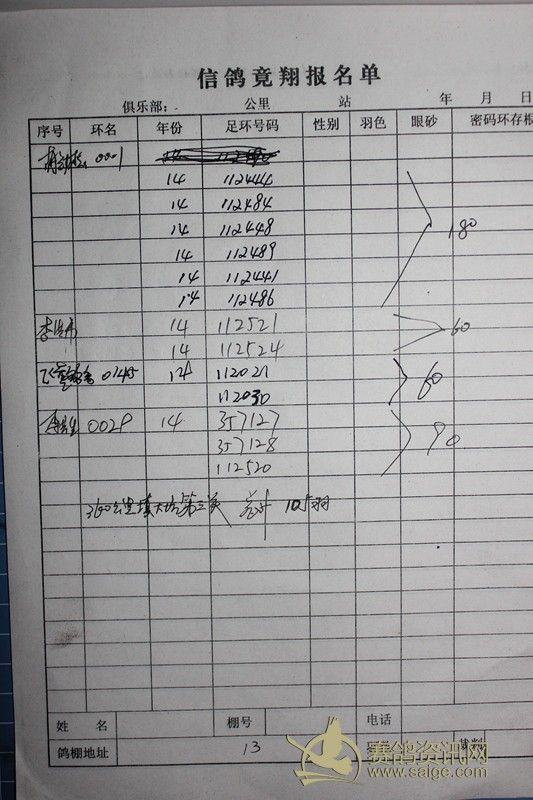 信鸽竟翔报名单
俱乐部： 公里 站 年 月 日
序号 环名 年份 足环号码 性别 羽色 眼砂 密码环存根
0001
14 112444
14 112484
14 112448 180
14 112489
14 112441
14 112486
14 112521 60
14 112524
0145 14 112021 60
112030
0029 14 357127
357128 90
112520
第三关 105羽
姓名 棚号 电话
鸽棚地址 13 裁判
赛鸽资讯网
www.saige.com